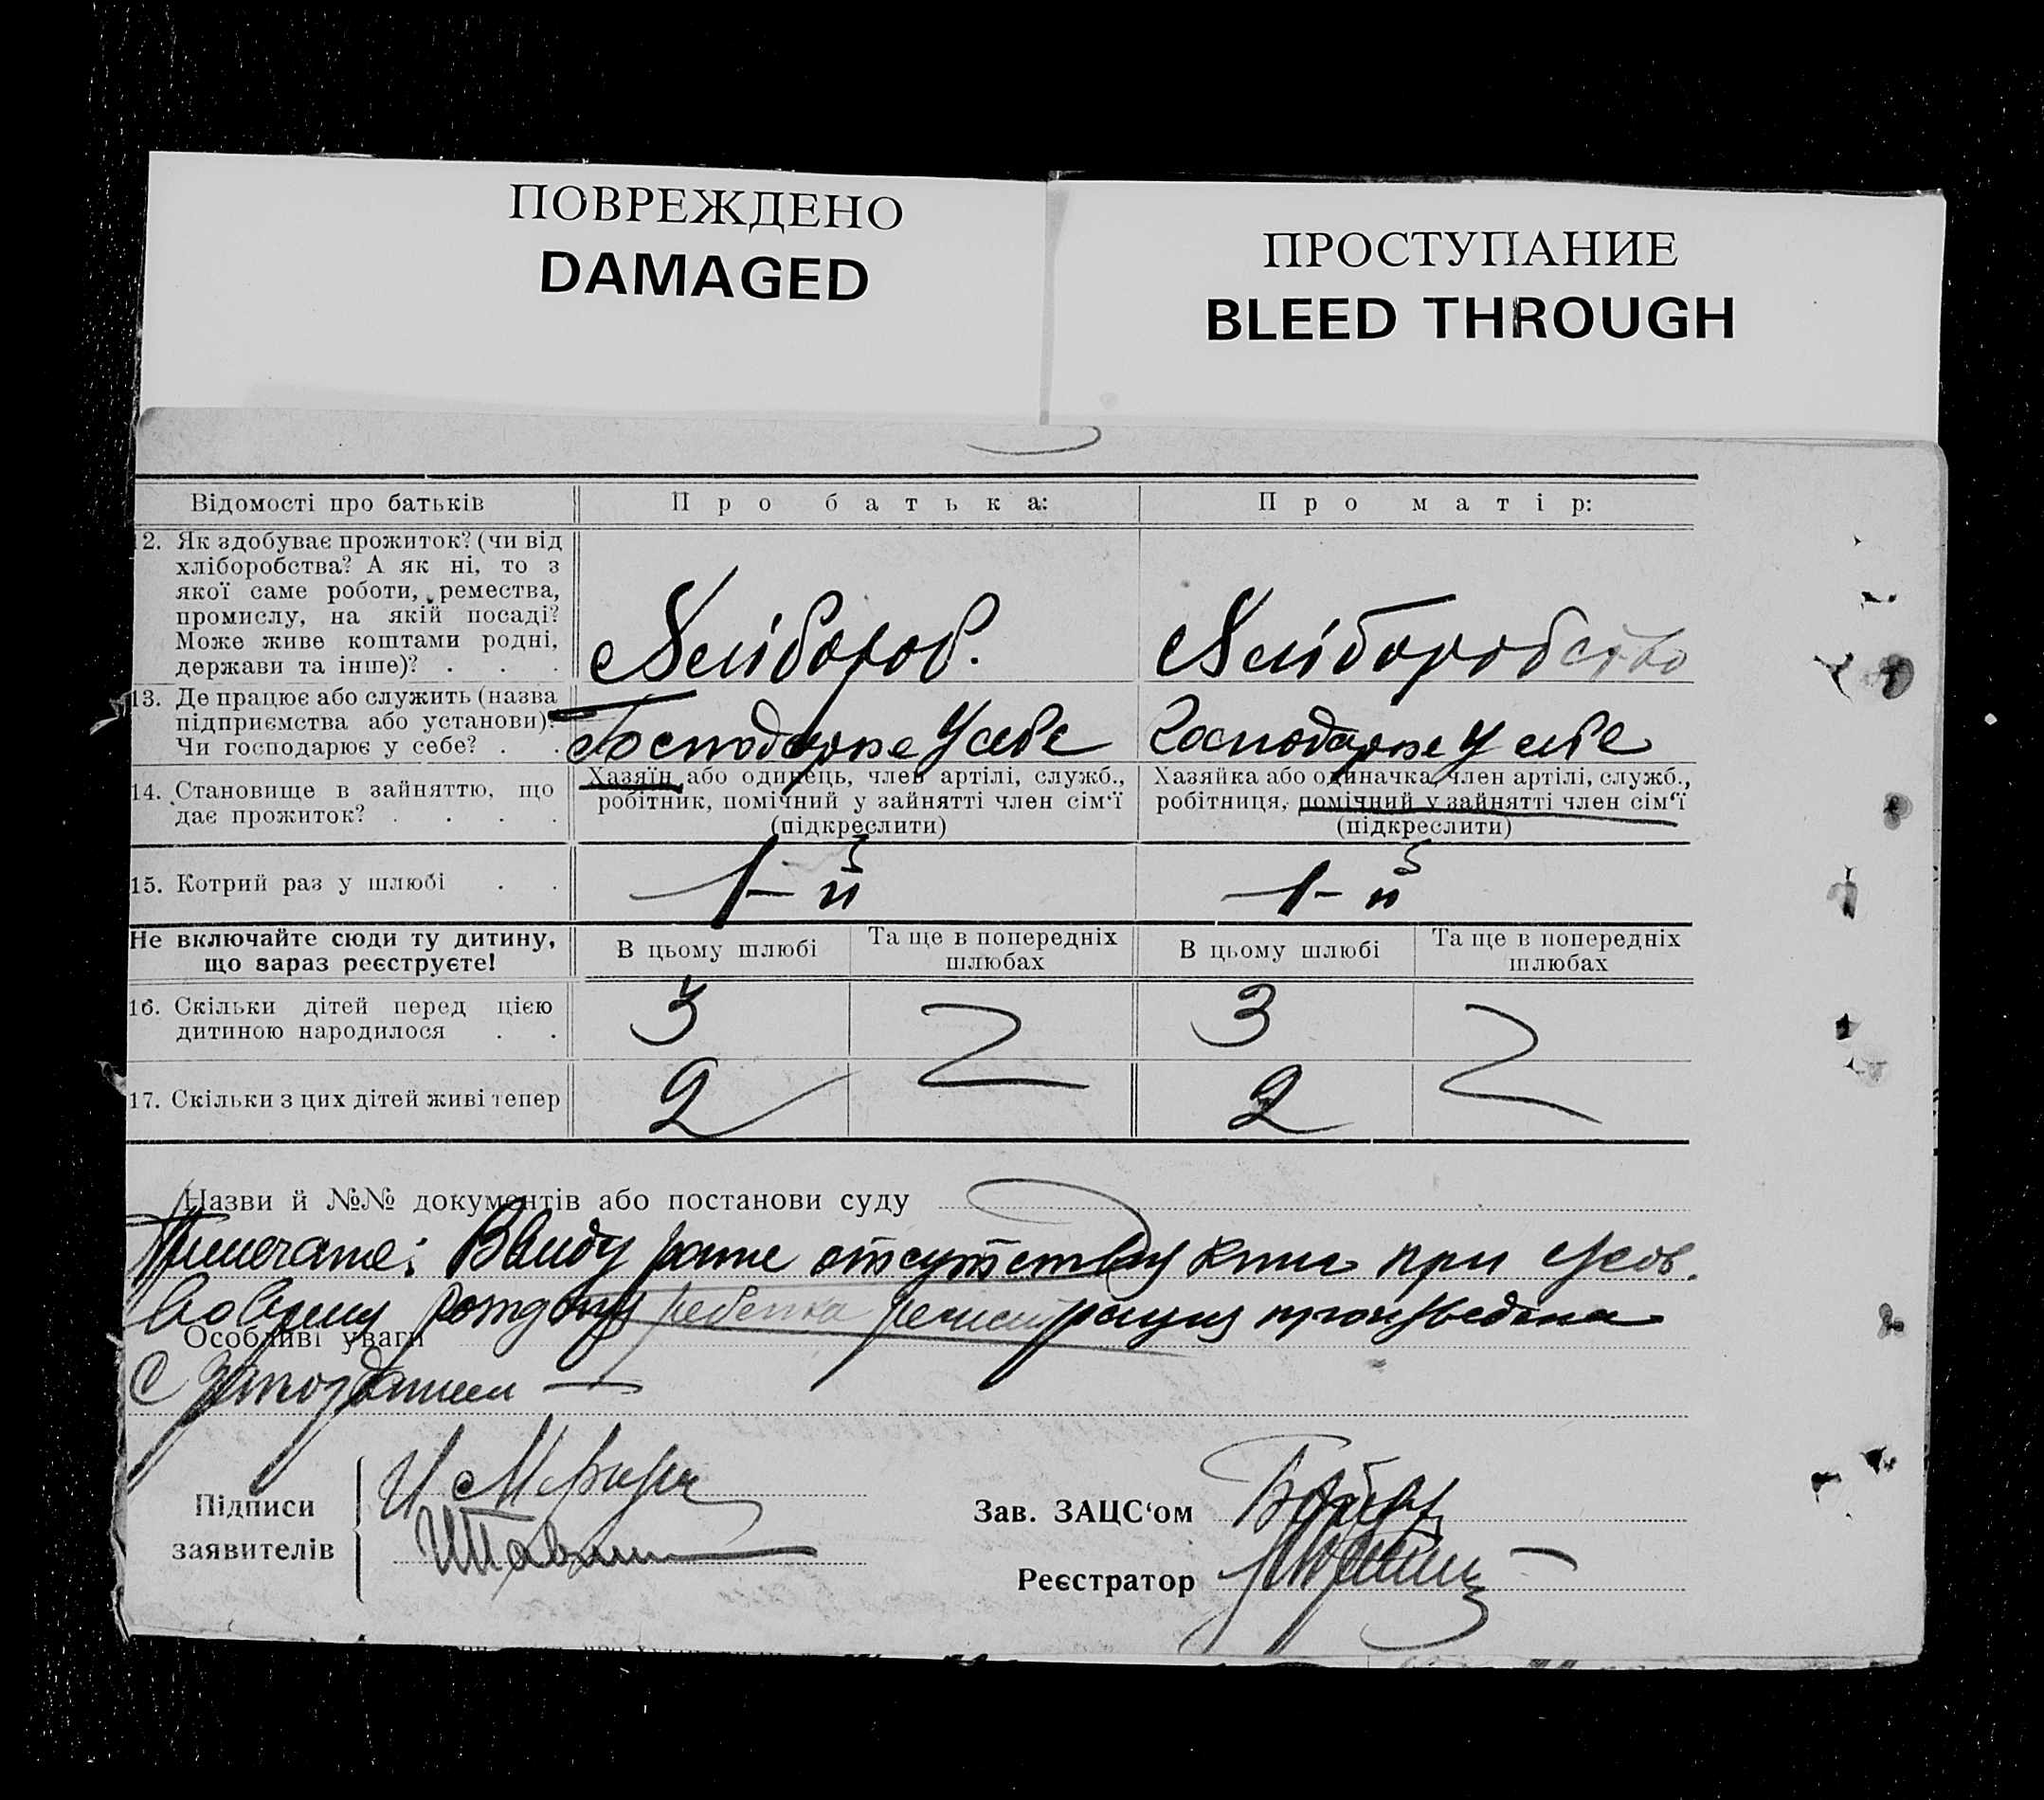 ПОВРЕЖДЕНО
DAMAGED
ПРОСТУПАНИЕ
BLEED THROUGH
Відомості про батьків
Про батька:
Про матір:
12. Як здобуває прожиток? (чи від
хліборобства? А як ні, то з
якої саме роботи, ремества,
промислу, на якій посаді?
Може живе коштами родні,
держави та інше)? . . .
Хлібороб.
Хліборобство
13. Де працює або служить (назва
підприємства або установи)?
Чи господарює у себе? . .
Господарює у себе
Господарює у себе
14. Становище в зайняттю, що
дає прожиток? . . . .
Хазяїн, або одинець, член артілі, служб.,
робітник, помічний у зайнятті член сім'ї
(підкреслити)
Хазяйка або одиначка, член артілі, служб.,
робітниця, помічний у зайнятті член сім'ї
(підкреслити)
15. Котрий раз у шлюбі . .
1-й
1-й
Не включайте сюди ту дитину,
що зараз реєструєте!
В цьому шлюбі
Та ще в попередніх
шлюбах
В цьому шлюбі
Та ще в попередніх
шлюбах
16. Скільки дітей перед цією
дитиною народилося . .
3
3
17. Скільки з цих дітей живі тепер
2
2
Назви й №№ документів або постанови суду
Примечание: Ввиду отсутствия книг при
рождения ребенка регистрация произведена
Особливі уваги
с запозданием —
Підписи
заявителів
Зав. ЗАЦС'ом
Реєстратор